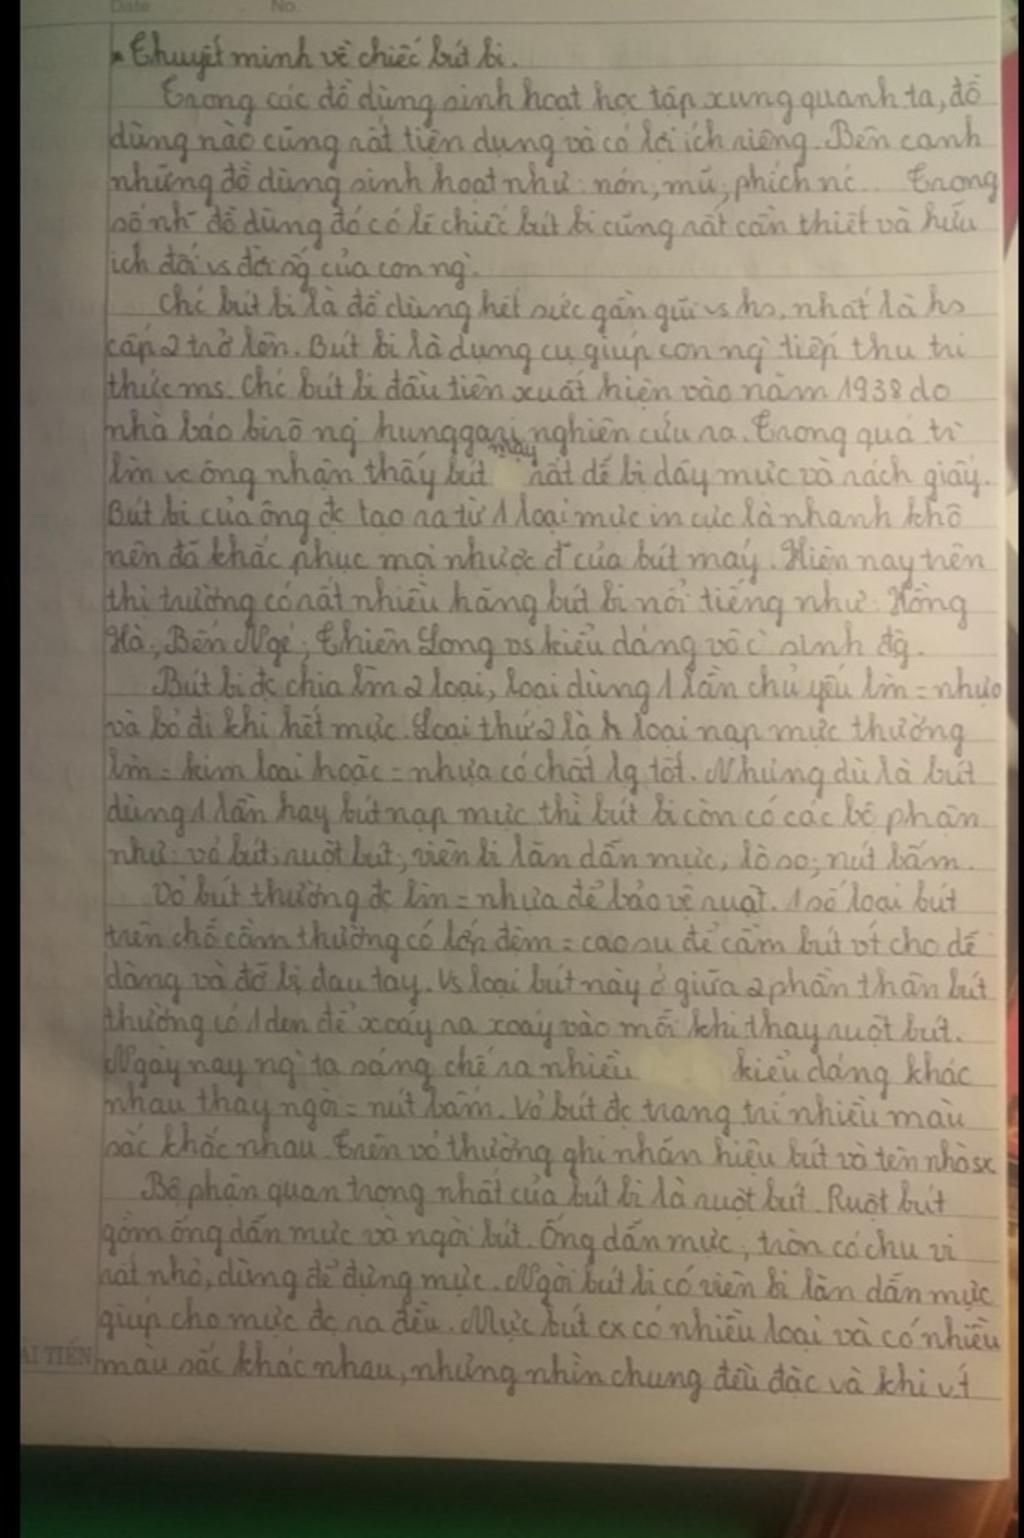 Date No.
* Thuyết minh về chiếc bút bi.
Trong các đồ dùng sinh hoạt học tập xung quanh ta, đồ
dùng nào cũng rất tiện dụng và có lợi ích riêng. Bên cạnh
những đồ dùng sinh hoạt như: nón, mũ, phích nc... Trong
số nh~ đồ dùng đó có lẽ chiếc bút bi cũng rất cần thiết và hữu
ích đối vs đời sống của con ng`.
Chc bút bi là đồ dùng hết sức gần gũi vs hs, nhất là hs
cấp 2 trở lên. Bút bi là dụng cụ giúp con ng` tiếp thu tri
thức ms. Chc bút bi đầu tiên xuất hiện vào năm 1938 do
nhà báo birô ng` hunggari nghiên cứu ra. Trong quá tr`
lm vc ông nhận thấy bút máy rất dễ bị dây mực và rách giấy.
Bút bi của ông đc tạo ra từ 1 loại mực in cực là nhanh khô
nên đã khắc phục mọi nhược đ' của bút máy. Hiện nay trên
thị trường có rất nhiều hãng bút bi nổi tiếng như: Hồng
Hà, Bến Ngé, Thiên Long vs kiểu dáng vô c` sinh đg.
Bút bi đc chia lm 2 loại, loại dùng 1 lần chủ yếu lm = nhựa
và bỏ đi khi hết mực. Loại thứ 2 là h loại nạp mực thường
lm = kim loại hoặc = nhựa có chất lg tốt. Nhưng dù là bút
dùng 1 lần hay bút nạp mực thì bút bi còn có các bộ phận
như: vỏ bút, ruột bút, viên bi lăn dẫn mực, lò so, nút bấm.
Vỏ bút thường đc lm = nhựa để bảo vệ ruột. 1 số loại bút
trên chỗ cầm thường có lớp đệm = cao su để cầm bút vt cho dễ
dàng và đỡ bị đau tay. Vs loại bút này ở giữa 2 phần thân bút
thường có 1 đen để xoáy ra xoáy vào mỗi khi thay ruột bút.
Ngày nay ng` ta sáng chế ra nhiều kiểu dáng khác
nhau thay ngòi = nút bấm. Vỏ bút đc trang trí nhiều màu
sắc khác nhau. Trên vỏ thường ghi nhán hiệu bút và tên nhà sx
Bộ phận quan trọng nhất của bút bi là ruột bút. Ruột bút
gồm ống dẫn mực và ngòi bút. Ống dẫn mực, tròn có chu vi
rất nhỏ, dùng để đựng mực. Ngòi bút bi có viên bi lăn dẫn mực
giúp cho mực đc ra đều. Mực bút cx có nhiều loại và có nhiều
màu sắc khác nhau, nhưng nhìn chung đều đặc và khi vt
ẢI TIẾN